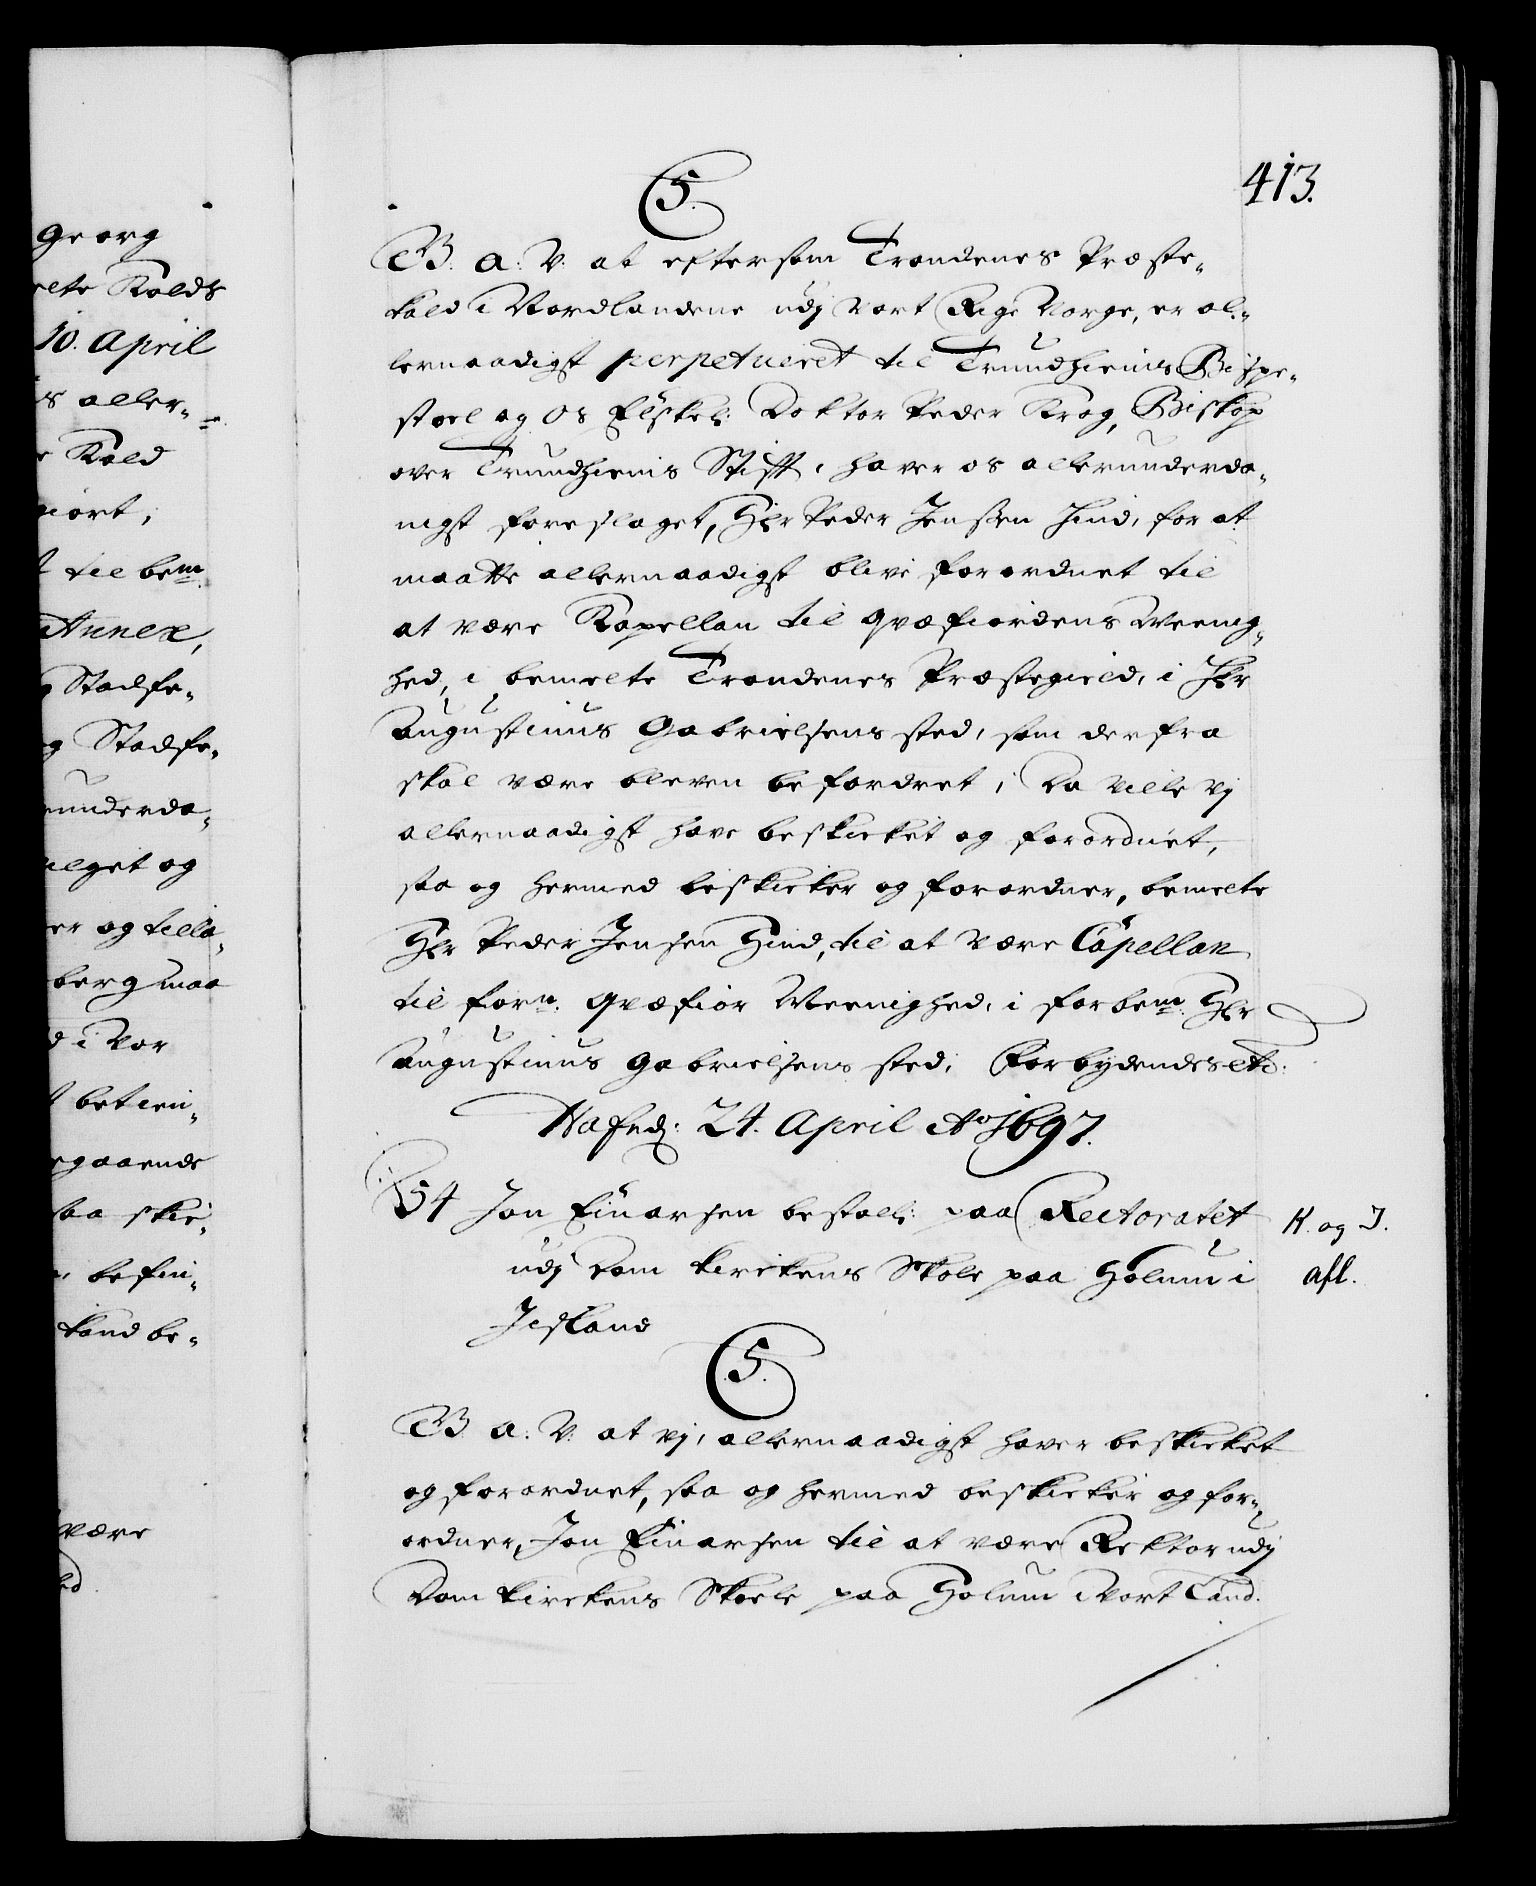 Georg
elte Kolds
10. April
s aller-
e Kald
giort,
t til bem:
Annex,
g Stadfe-
og Stadfe-
runderda-
ilget og
er og tilla-
berg maa
d i Vor
t betien-
egaaende
saa skic-
befin-
kand be-
være
413.
5.
G. A. V: at eftersom Trondenes Præste-
kald i Nordlandene udj vort Rige Norge, er al-
lernaadigst perpetueret til Trundhiems Bispe-
stoel og Os Elskel: Doktor Peder Krog, Biskop
over Trundhiems Stifft, haver os allerunderda-
nigst foreslaget, Hr Peder Jenssen Hind, for at
maatte allernaadigst blive forordnet til
at være Kapellan til Qvæfiordens Meenig-
hed, i bemelte Trondenes Præstegield, i Hr
Augustinus Gabrielsens sted, som derfra
skal være bleven befordret, Da ville Vj
allernaadigst have beskicket og forordnet,
saa og hermed beskicker og forordner, bemelte
Hr Peder Jensen Hind, til at være Capellan
til forn: Qvæfior Meenighed, i forbem: Hr
Augustinus Gabrielsens sted, Forbydendes etc:
Hafned: 24. April Ao 1697.
54 Jon Einarsen bestaell: paa Rectoratet
udj Dom kirckens Skole paa Holum i
Jisland
K. og I.
afl.
5.
G. A. V: at Vj, allernaadigst haver beskicket
og forordnet, saa og hermed beskicker og for-
ordner, Jon Einarsen til at være Rektor udj
Dom kirckens Skoele paa Holum i Vort Land.